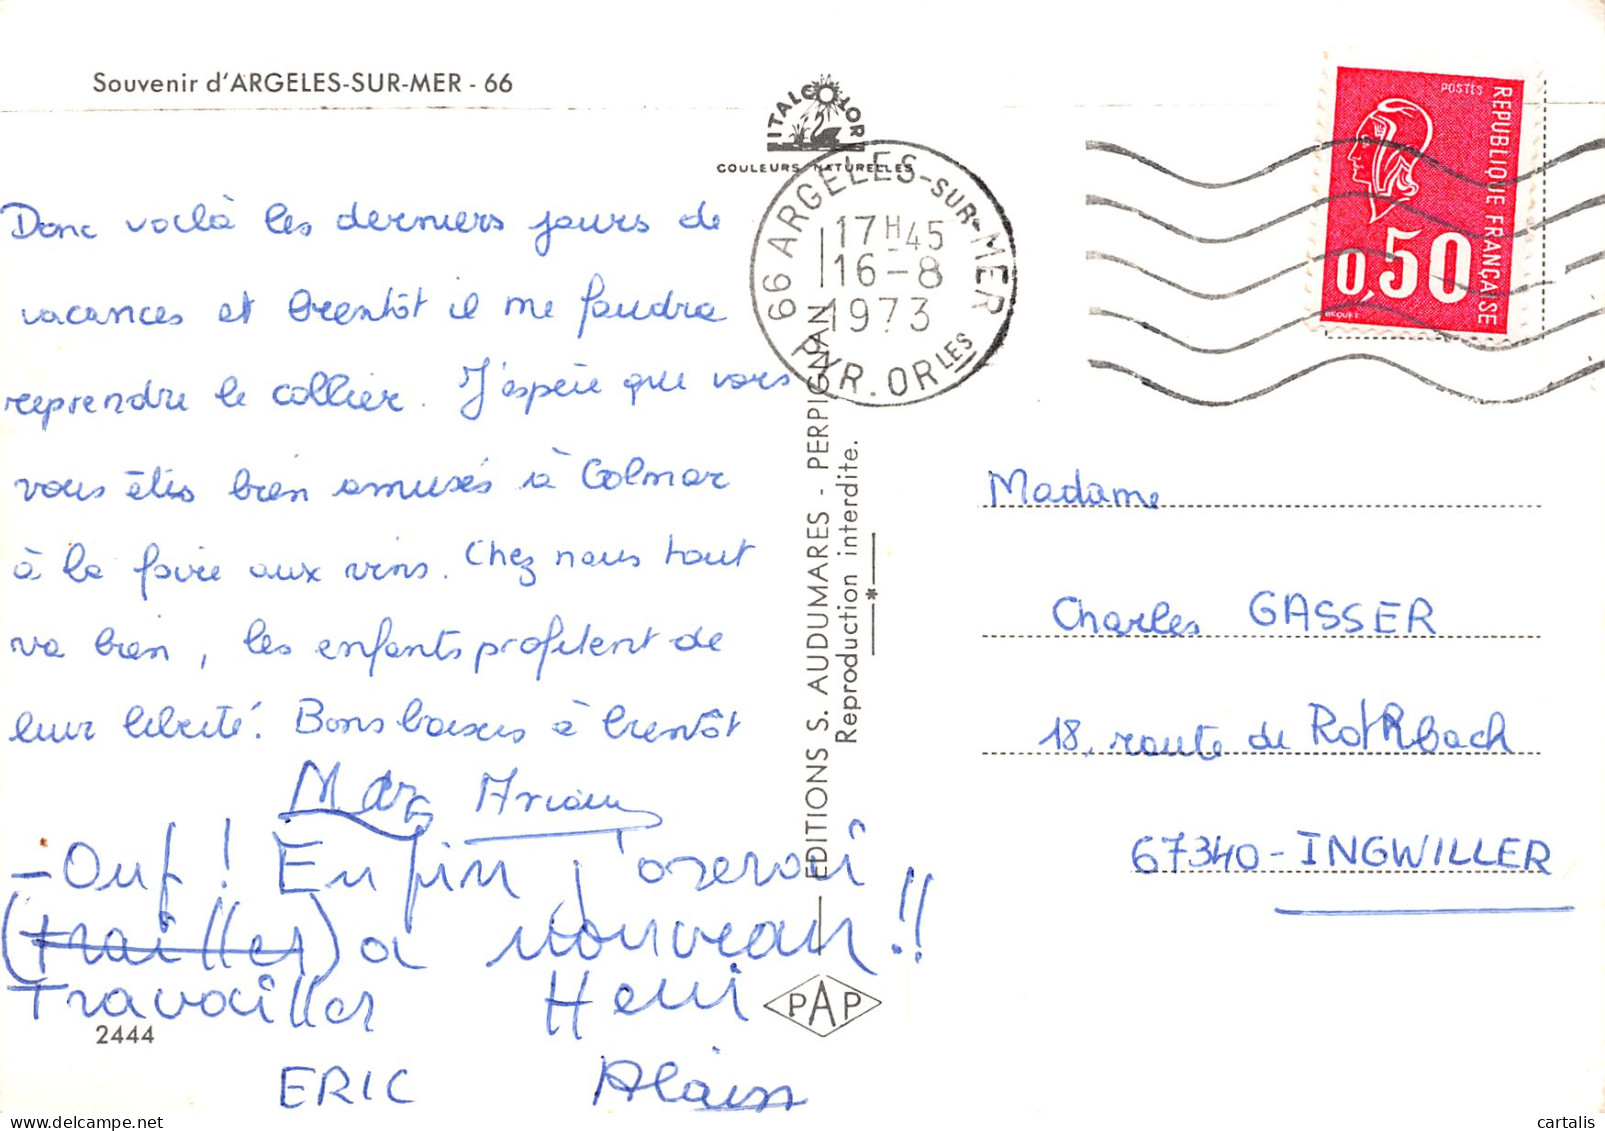 Souvenir d'ARGELES-SUR-MER - 66
ITALCOLOR
COULEURS NATURELLES
66 ARGELES-SUR-MER
17H45
16-8
1973
PYR. ORLES
POSTES
REPUBLIQUE FRANÇAISE
0,50
BEQUET
Donc voilà les derniers jours de
vacances et bientôt il me faudra
reprendre le collier. J'espère que vous
vous êtes bien amusés à Colmar
à la foire aux vins. Chez nous tout
va bien, les enfants profitent de
leur liberté. Bons baisers à bientôt
Marg Ariane
- Ouf ! Enfin j'oserai
(trailler) a nouveau !!
Travailler Henri
ERIC Alain
2444
EDITIONS S. AUDUMARES - PERPIGNAN
Reproduction interdite.
*
PAP
Madame
Charles GASSER
18, route de Rothbach
67340 - INGWILLER
cartalis